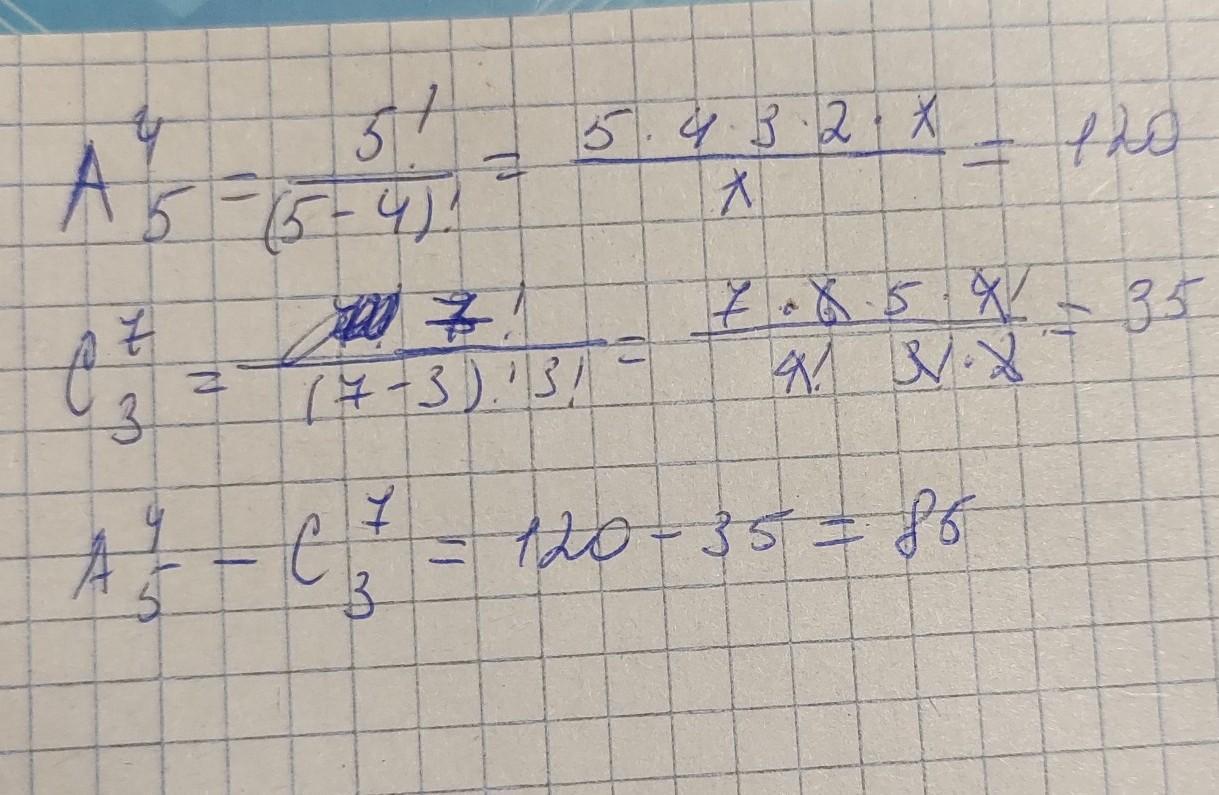 A⁴₅ = 5!/(5-4)! = 5·4·3·2·1/1 = 120
C⁷₃ = 7!/(7-3)!3! = 7·6·5·4!/4! 3!·2 = 35
A⁴₅ - C⁷₃ = 120 - 35 = 85